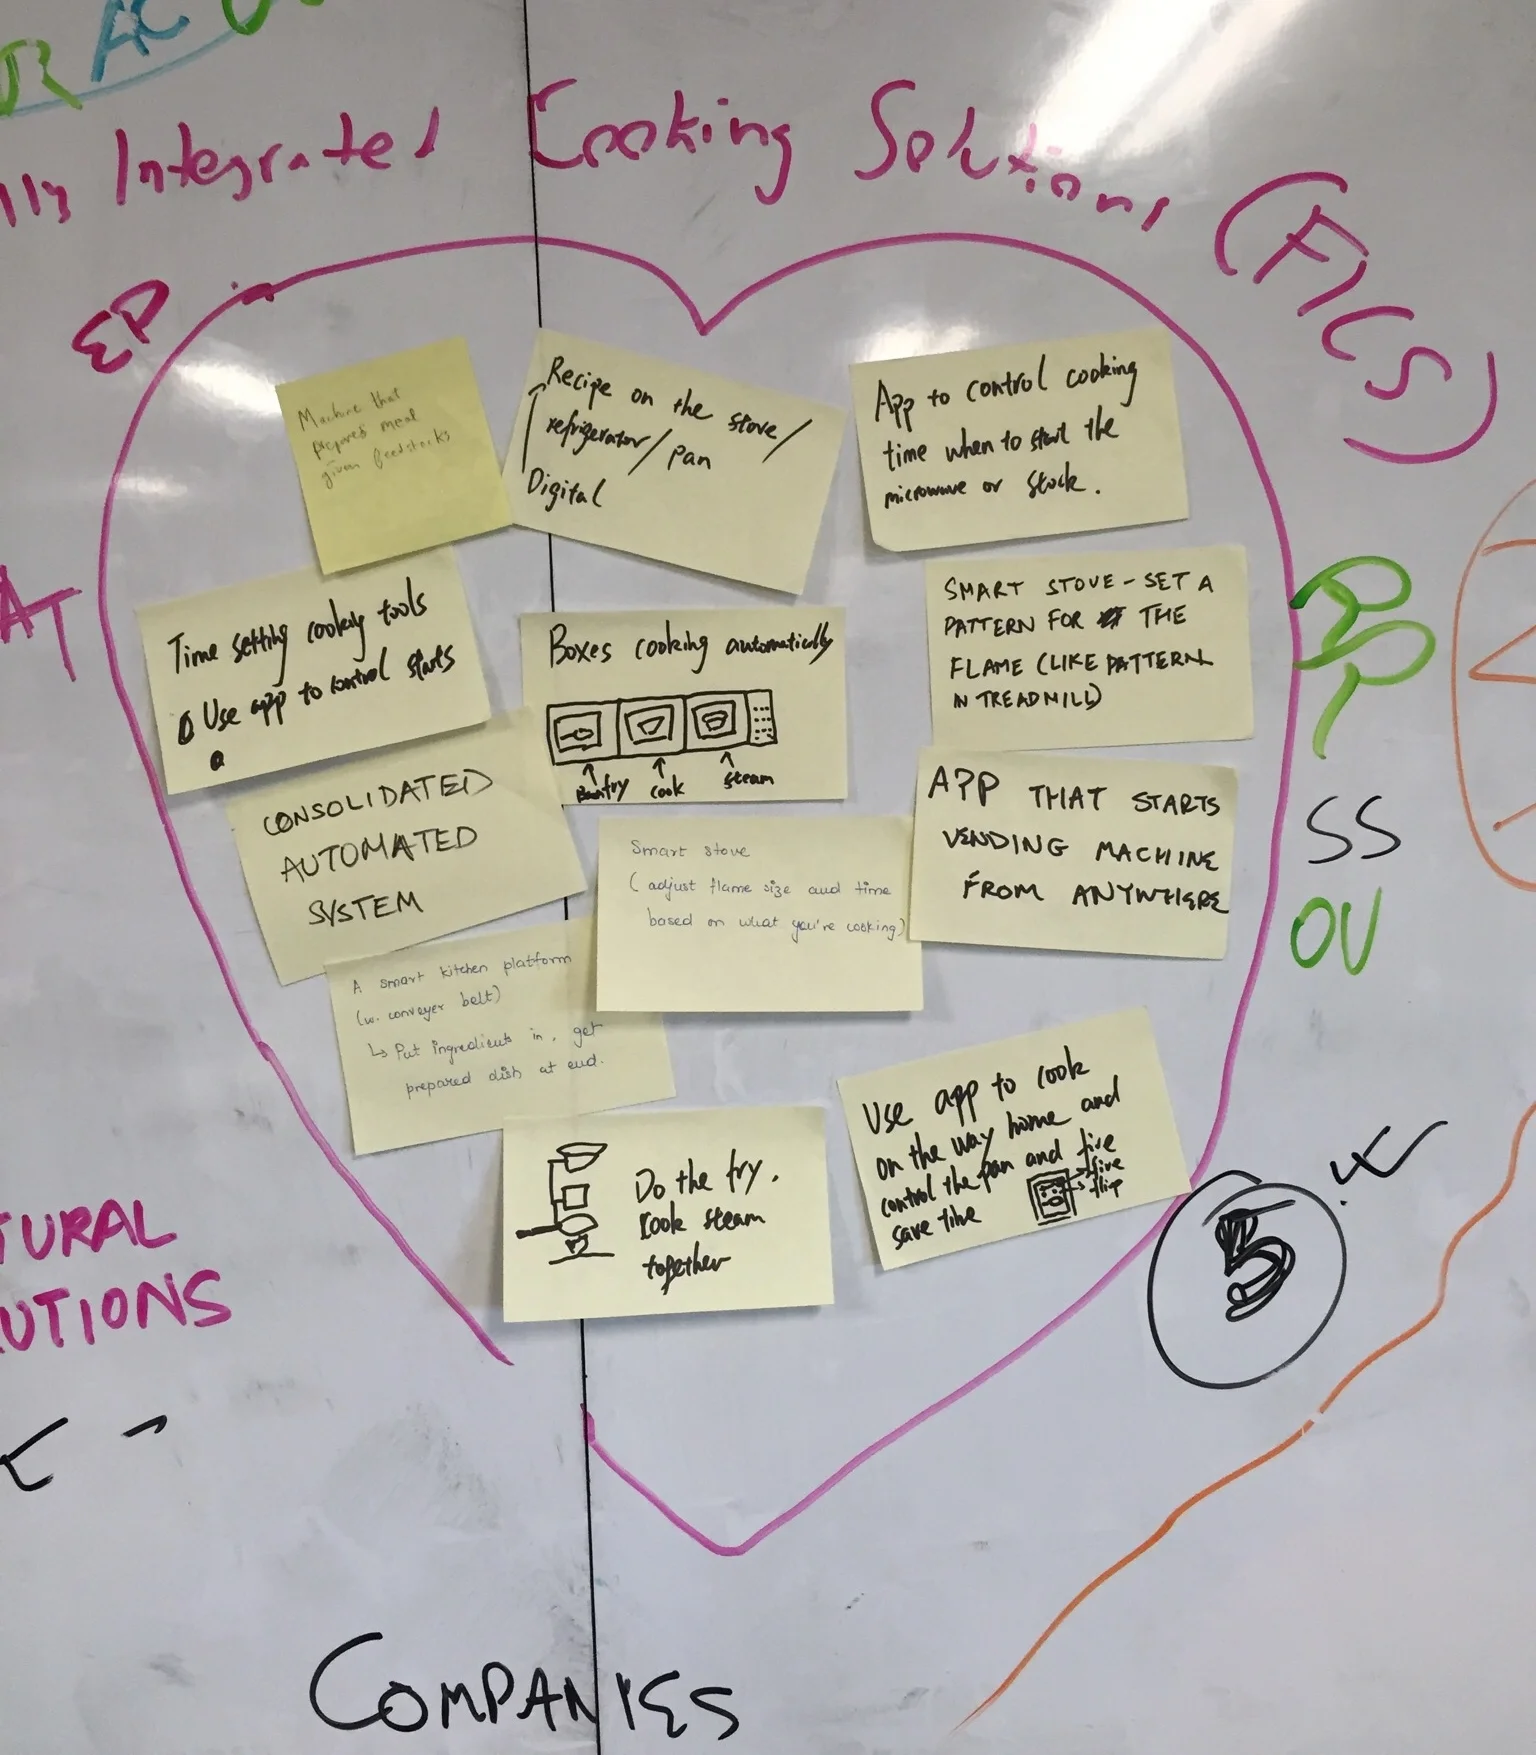 lly Integrated Cooking Solutions (FICS)
EP
AT
Machine that
prepares meal
given feedstocks
Recipe on the stove/
refrigerator/pan
Digital
App to control cooking
time when to start the
microwave or stock.
Time setting cooking tools
Use app to control starts
Boxes cooking automatically
fry
cook
steam
SMART STOVE - SET A
PATTERN FOR THE
FLAME (LIKE PATTERN
IN TREADMILL)
CONSOLIDATED
AUTOMATED
SYSTEM
Smart stove
( adjust flame size and time
based on what you're cooking)
APP THAT STARTS
VENDING MACHINE
FROM ANYWHERE
SS
OV
A smart kitchen platform
(w. conveyer belt)
↳ Put ingredients in, get
prepared dish at end.
Do the fry.
cook steam
together
Use app to cook
on the way home and
control the pan and fire
save time
fire
flip
5
TURAL
UTIONS
COMPANIES